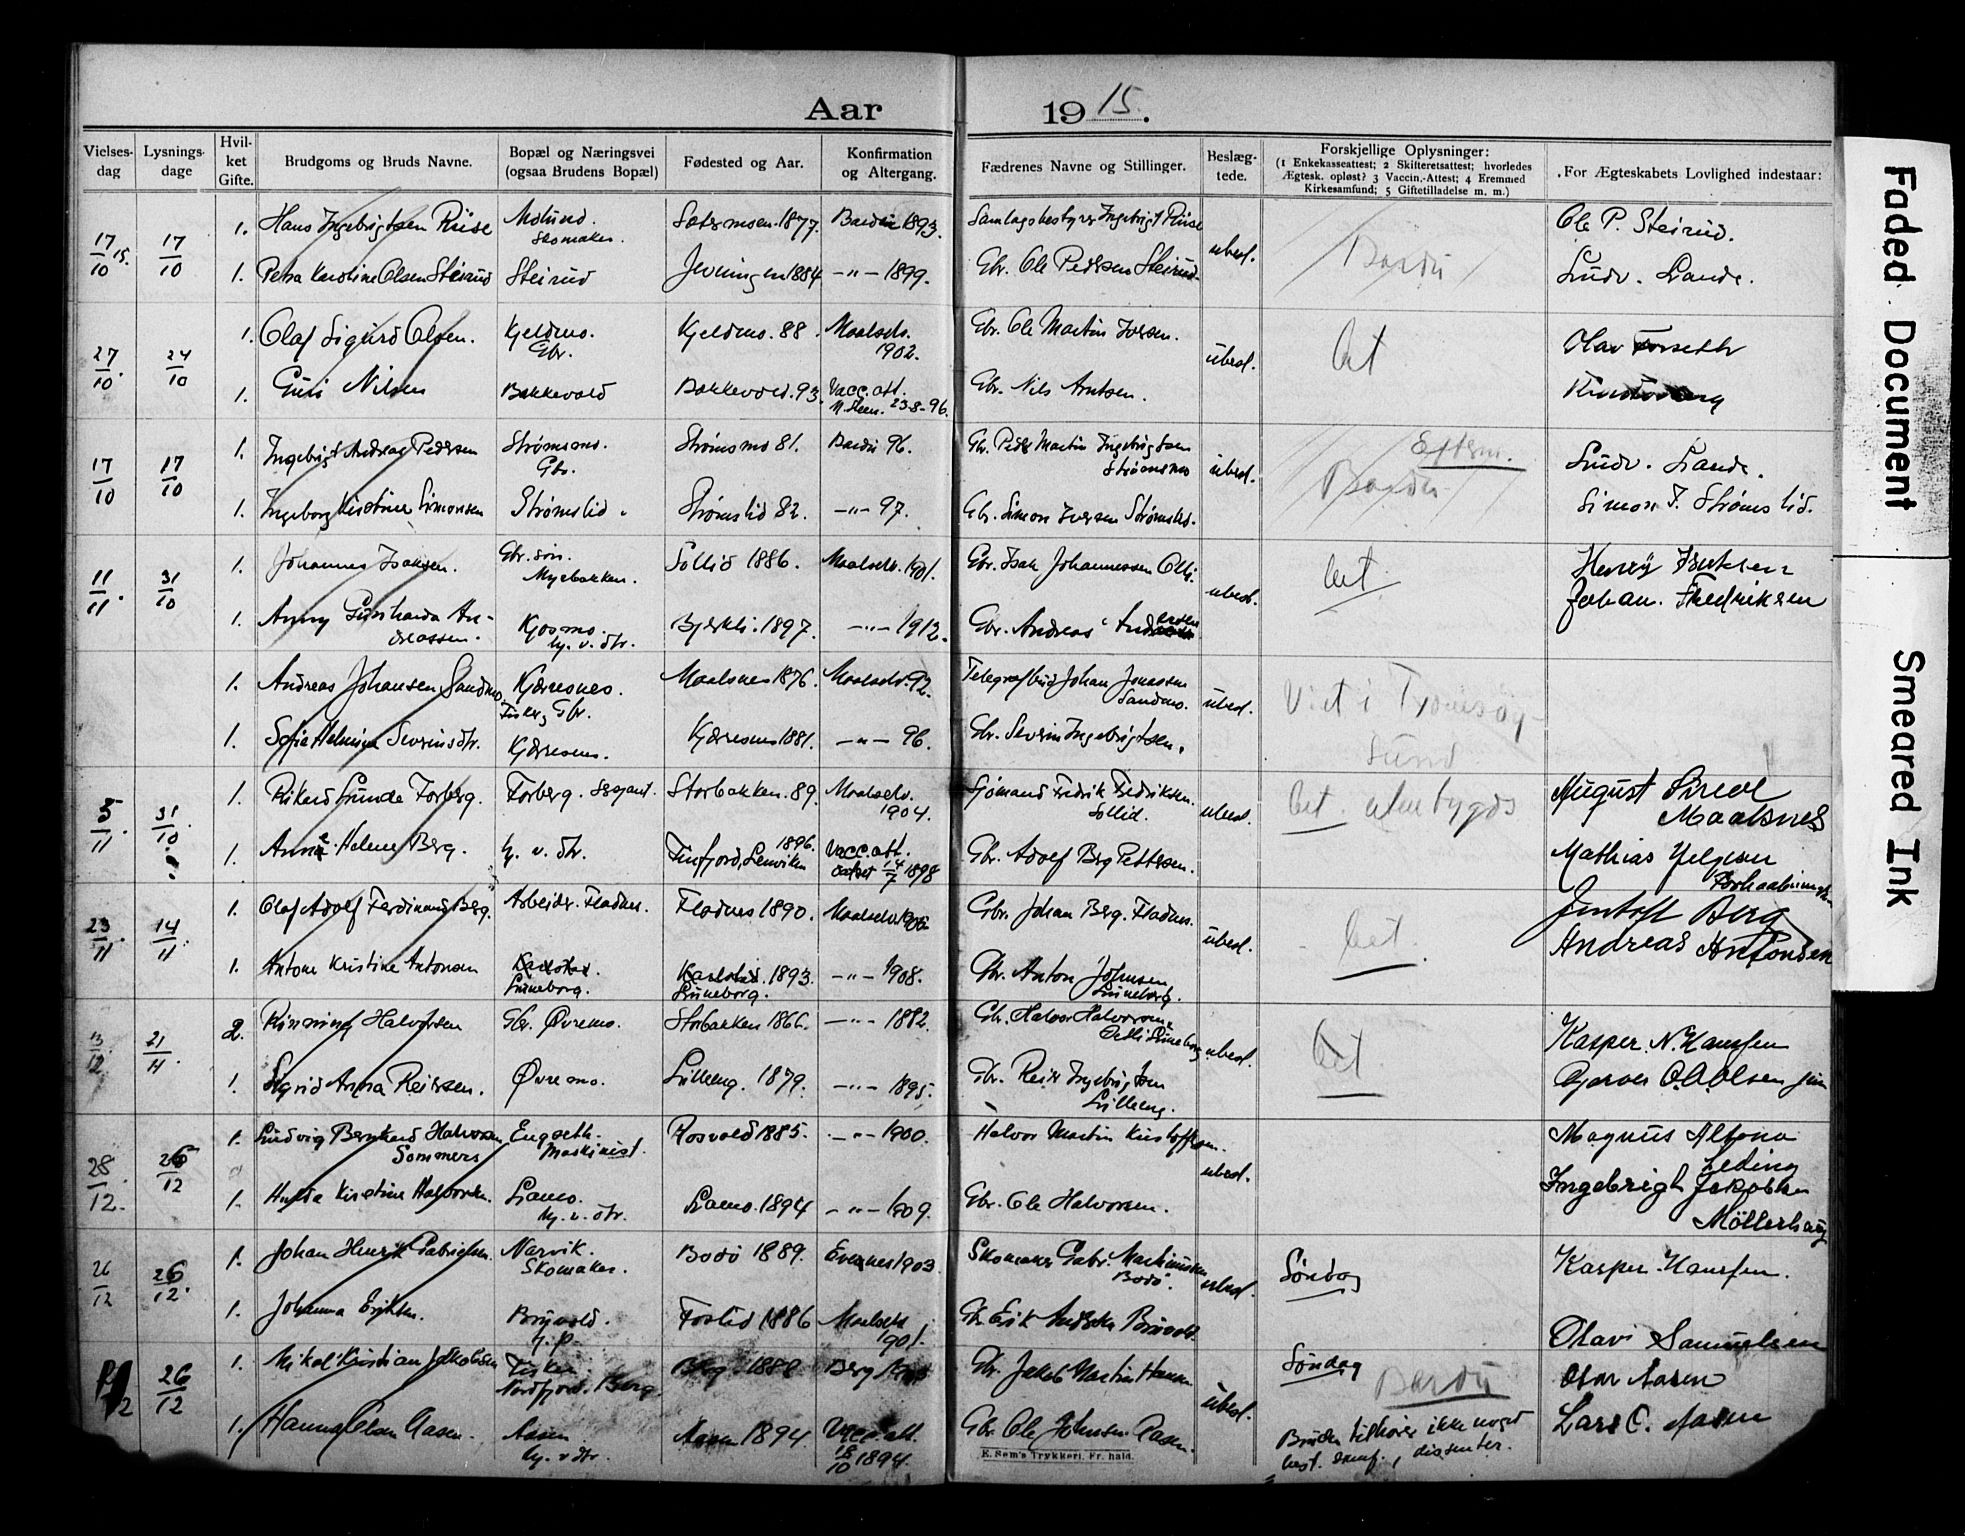 Aar 1915.
Vielses-dag
Lysnings-dage
Hvil-ket Gifte.
Brudgoms og Bruds Navne.
Bopæl og Næringsvei (ogsaa Brudens Bopæl)
Fødested og Aar.
Konfirmation og Altergang.
Fædrenes Navne og Stillinger.
Beslæg-tede.
Forskjellige Oplysninger: (1 Enkekasseattest; 2 Skifteretsattest; hvorledes Ægtesk. opløst? 3 Vaccin.-Attest; 4 Fremmed Kirkesamfund; 5 Giftetilladelse m. m.)
For Ægteskabets Lovlighed indestaar:
17/10 15. 17/10 1. Hans Ingebrigtsen Riise Molund. Skomaker. Sætermoen 1877. Bardu 1893. Samlagsbestyrer Ingebrigt Riise ubesl. Bardu Ole P. Steirud.
1. Petra Karoline Olsen Steirud Steirud Jevningen 1884 -"- 1899. Gbr. Ole Pedersen Steirud. Ludv. Lande.
27/10. 24/10 1. Olaf Sigurd Olsen. Kjeldmo. Gbr. Kjeldmo. 88. Maalselv. 1902. Gbr. Ole Martin Iversen. ubesl. bet Olav Forseth
1. Guri Nilsen Bakkevold Bakkevold. 93. Vacc. att. 23-8-96. Gbr. Nils Arntsen.
17/10 17/10 1. Ingebrigt Andreas Pedersen Strømsmo. Gbr. Strømsmo 81. Bardu 96. Gbr. Peder Martin Ingebrigtsen Strømsmo ubesl. Efterm. Bardu Ludv. Lande.
1. Ingeborg Kristine Simonsen Strømslid. Strømslid 82. -"- 97. Gbr. Simon Iversen Strømslid. Simon I. Strømslid.
11/11. 31/10 1. Johannes Isaksen. Gbr. søn. Myrbakken. Sollid 1886. Maalselv. 1901. Gbr. Isak Johannessen ubesl. bet Henry
1. Anny Gunharda Andreassen. Kjosmo. hj. v. dtr. Bjerkli. 1897. -"- 1912. Gbr. Andreas Johan. Fredriksen
1. Andreas Johansen Sandmo Kjærresnes. Fisker, Gbr. Maalsnes 1876. Maalselv. 92. Telegrafbud Johan Jonassen Sandmo. ubesl. Viet i Tromsøysund
1. Sofie Helmine Severinsdtr. Kjærresnes. Kjærresnes 1881. -"- 96. Gbr. Severin Ingebrigtsen.
5/11. 31/10. ? 1. Rikard Gunde Forberg. Forberg. Sersjant. Storbakken. 89. Maalselv. 1904. Sjømand Fredrik Fredriksen. Sollid. ubesl. bet utenbygds August
Maalsnes
1. Anna Helene Berg. hj. v. dtr. Finfjord, Lenviken 1896. Vacc. att. 1898 Gbr. Adolf Berg Pettersen. Mathias Helgesen
23/11. 14/11 1. Olaf Adolf Ferdinand Berg. Arbeider. Fladnes. Fladnes 1890. Maalselv 1905 Gbr. Johan Berg. Fladnes. ubesl. bet. Berg
1. Antone Kristine Antonsen Karlstad. Luneborg. Karlstad. 1893. Luneborg. -"- 1908. Gbr. Anton Johnsen Luneborg. Andreas Antonsen
13/12 21/11 2. Halvorsen Gbr. Øvremo. Storbakken 1866. -"- 1882. Gbr. Halvor Halvorsen ubesl. bet Kasper. N. Hansen
1. Sigrid Anna Reiersen. Øvremo. Lilleeng. 1879. -"- 1895. Gbr. Reier Ingebrigtsen Lilleeng. O. A. Olsen jun
28/12. 26/12 1. Ludvig Bernhard Halvorsen Sommerset Engseth. Maskinist. Rosvold 1885. -"- 1900. Halvor Martin Kristoffersen. ubesl. Magnus Altona
1. Hulda Kristine Halvorsen. Lamo. hj. v. dtr. Lamo. 1894 -"- 1909. Gbr. Ole Halvorsen. Ingebrigt Jakobsen Möllerhaug
26/12 26/12. 1. Johan Henrik Gabrielsen. Narvik. Skomaker. Bodö 1889. Evenes 1903. Skomaker Gabr. Martinussen Bodö. ubesl. Söndag Kasper Hansen.
1. Johanna Eriksen. hj. p. Foslid 1886 Maalselv 1901. Gbr. Erik Olavi Samuelsen
/12 26/12 1. Mikal Kristian Jakobsen Fisker Nordfjord. Berg. Berg 1888 Berg Gbr. Jakob Martin Hansen ubesl. Söndag Bardu Olav Aasen
1. Hanna Olsen Aasen. Aasen hj. v. dtr. Aasen 1894 Vacc. att. 18/10 1894. Gbr. Ole Johnsen Aasen. Bruden tilhører ikke noget best. samf., dissenter. Lars O. Aasen
E. Sem's Trykkeri, Fr.hald.
Faded Document
Smeared Ink